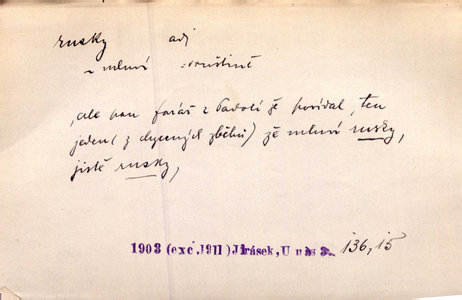 rusky adj
~ mluví : v ruštině
ale pan farář z Padolí že povídal, ten
jeden (z chycených zběhů) že mluví rusky,
jistě rusky,
1903 (exc. 1911) Jirásek, U nás 3. 136, 15